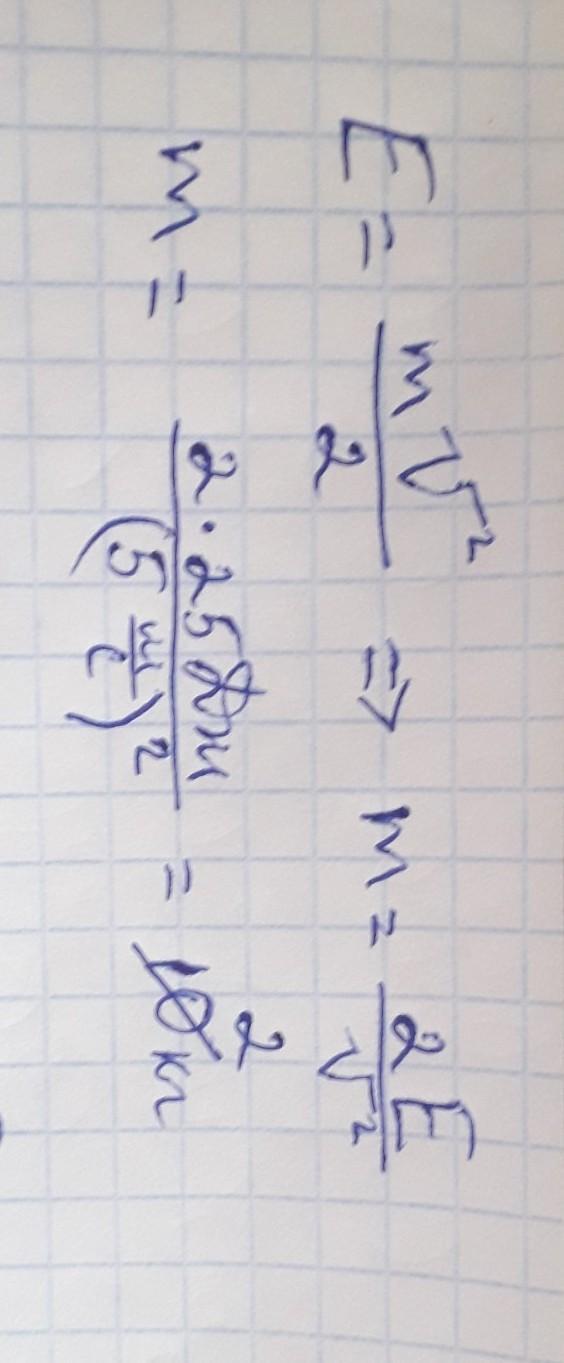 E = mV²/2 => m = 2E/V²
m = 2·25Дж/(5 м/с)² = 2 кг